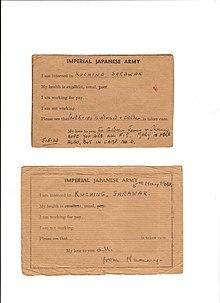 IMPERIAL JAPANESE ARMY
I am interned in KUCHING SARAWAK
My health is excellent, usual, poor.
I am working for pay.
I am not working.
Please see that is taken care.
My love to you
HOPE YOU ARE ALL FIT.
ALSO, BUT IN CAMP NO
IMPERIAL JAPANESE ARMY
I am interned in KUCHING, SARAWAK.
My health is excellent, usual, poor.
I am working for pay.
I am not working.
Please see that is taken care.
My love to you all.
from